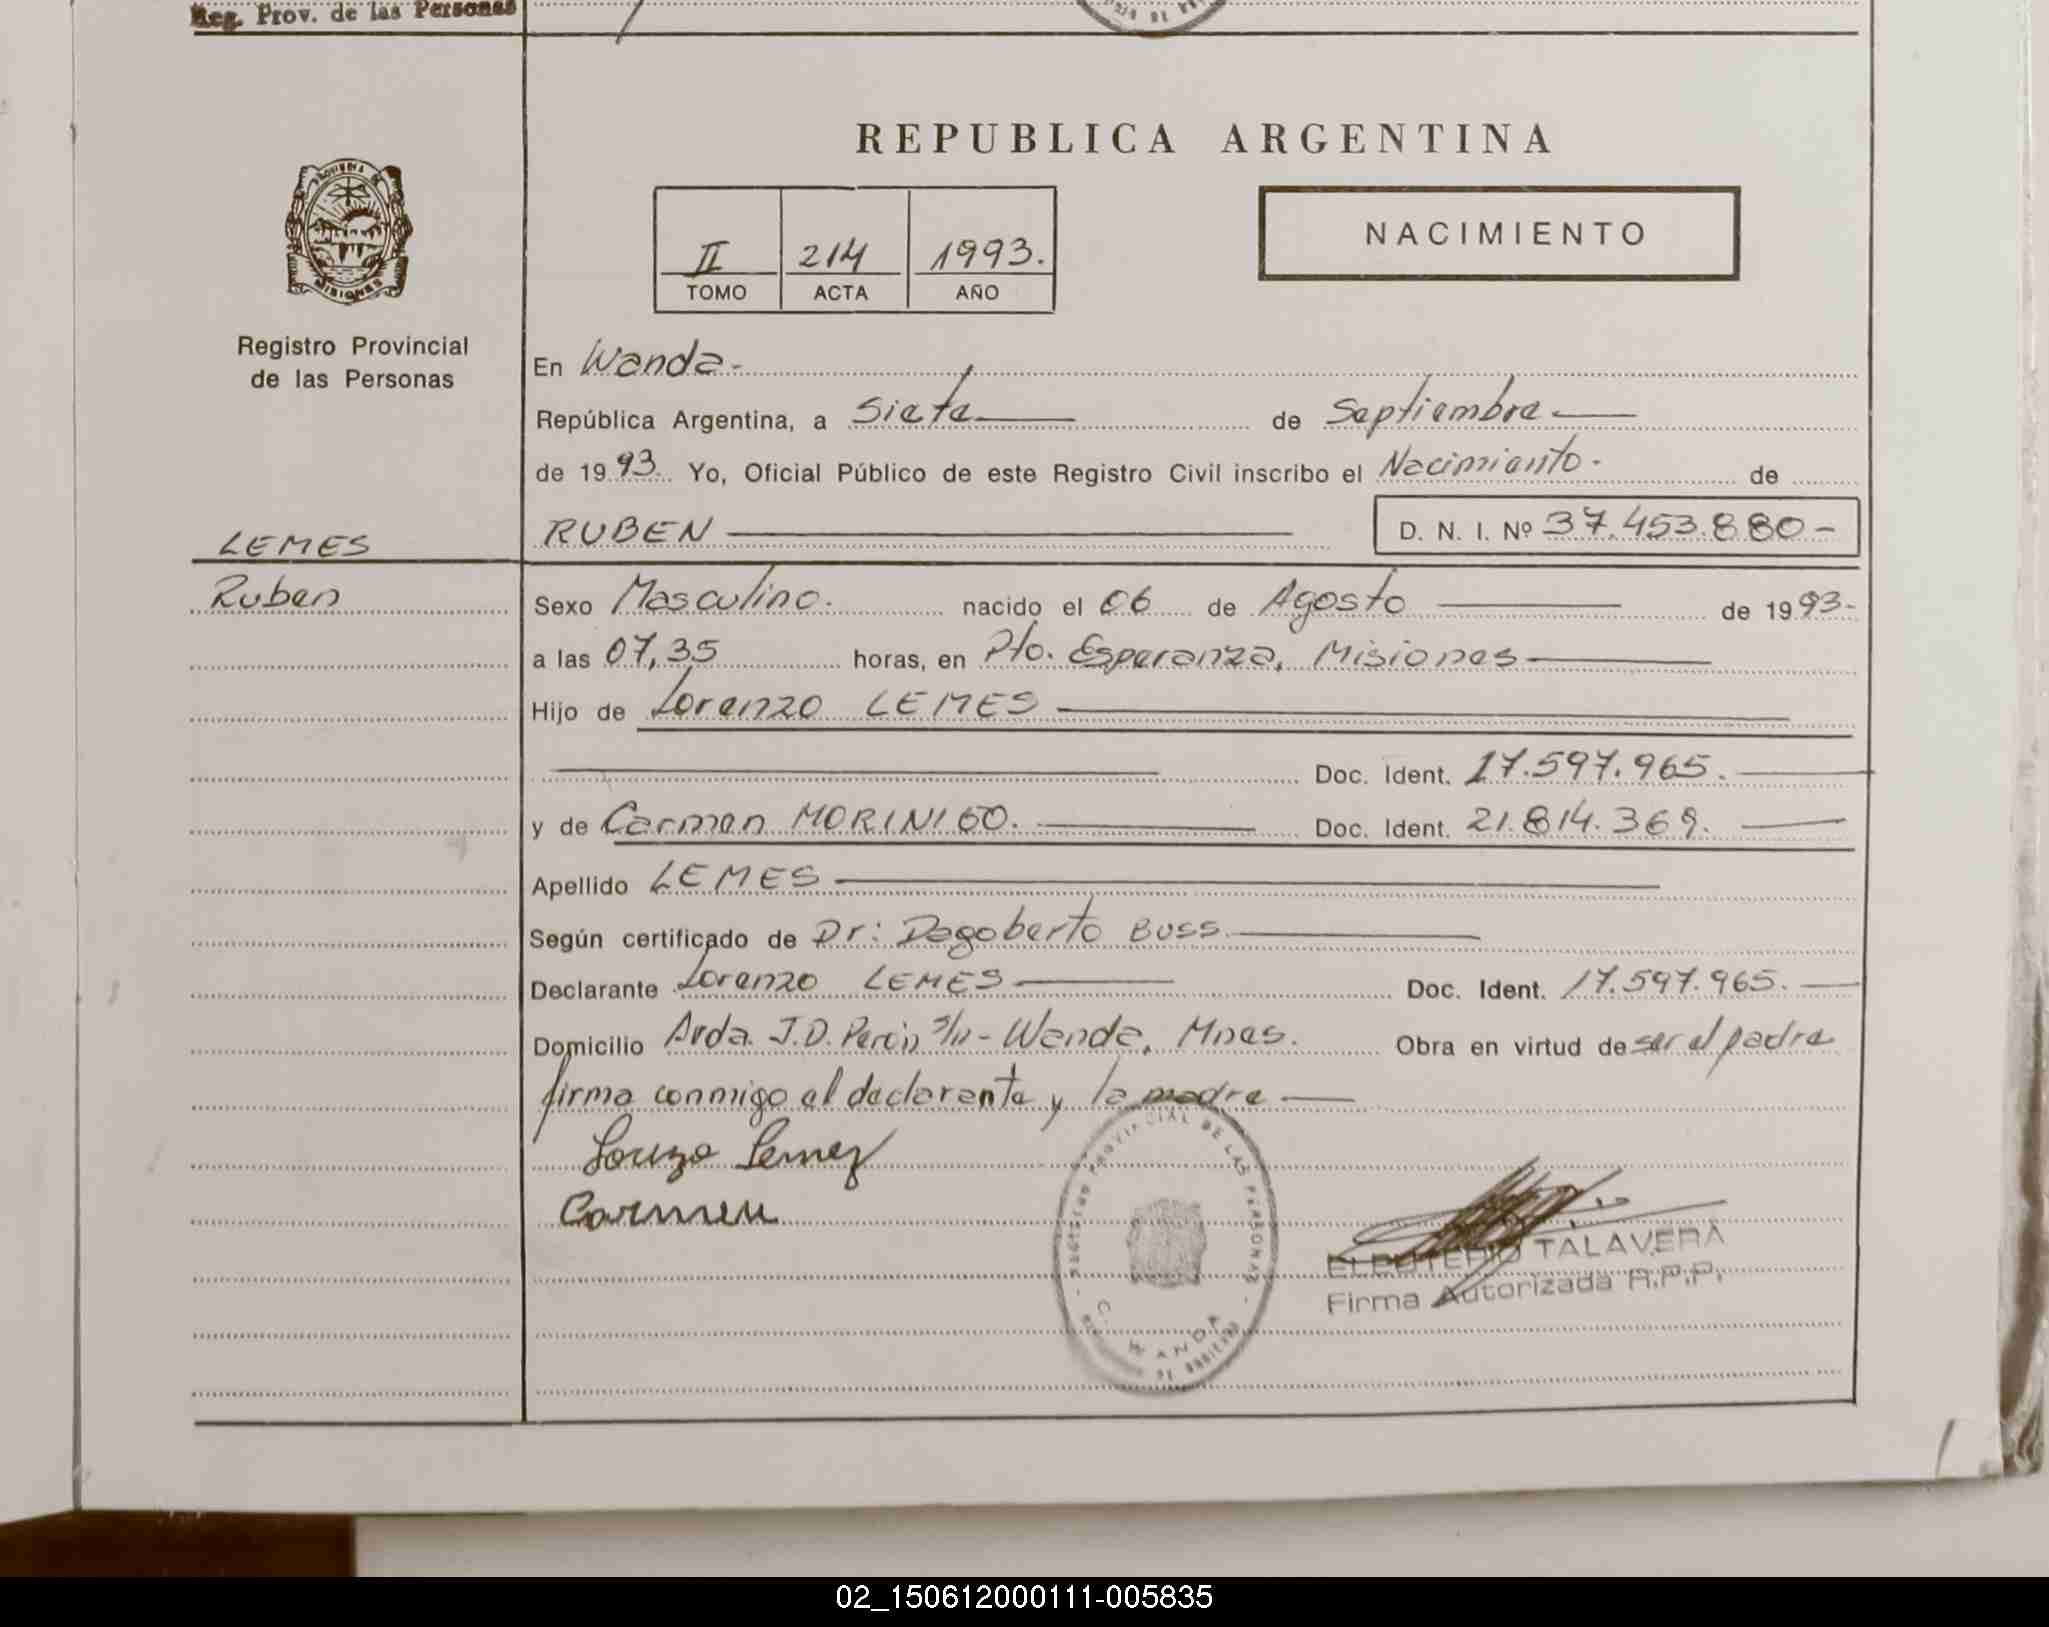 Reg. Prov. de las Personas
REPUBLICA ARGENTINA
PROVINCIA DE
MISIONES
Registro Provincial
de las Personas
II 214 1993.
TOMO ACTA AÑO
NACIMIENTO
En Wanda-
República Argentina, a Siete de Septiembre
de 1993. Yo, Oficial Público de este Registro Civil inscribo el Nacimiento. de
LEMES
RUBEN D. N. I. Nº 37.453.880-
Ruben
Sexo Masculino. nacido el 06 de Agosto de 1993-
a las 07,35 horas, en Pto. Esperanza, Misiones
Hijo de Lorenzo LEMES
Doc. Ident. 17.597.965.
y de Carmen MORINIGO. Doc. Ident. 21.814.369.
Apellido LEMES
Según certificado de Dr: Dagoberto BUSS
Declarante Lorenzo LEMES Doc. Ident. 17.597.965.
Domicilio Avda. J.D. Perón S/N - Wanda, Mnes. Obra en virtud de ser el padre
firma conmigo el declarante y la madre
Lorenzo Lemez
Carmen
REGISTRO PROVINCIAL DE LAS PERSONAS
WANDA
ELEUTERIO TALAVERA
Firma Autorizada R.P.P.
02_150612000111-005835